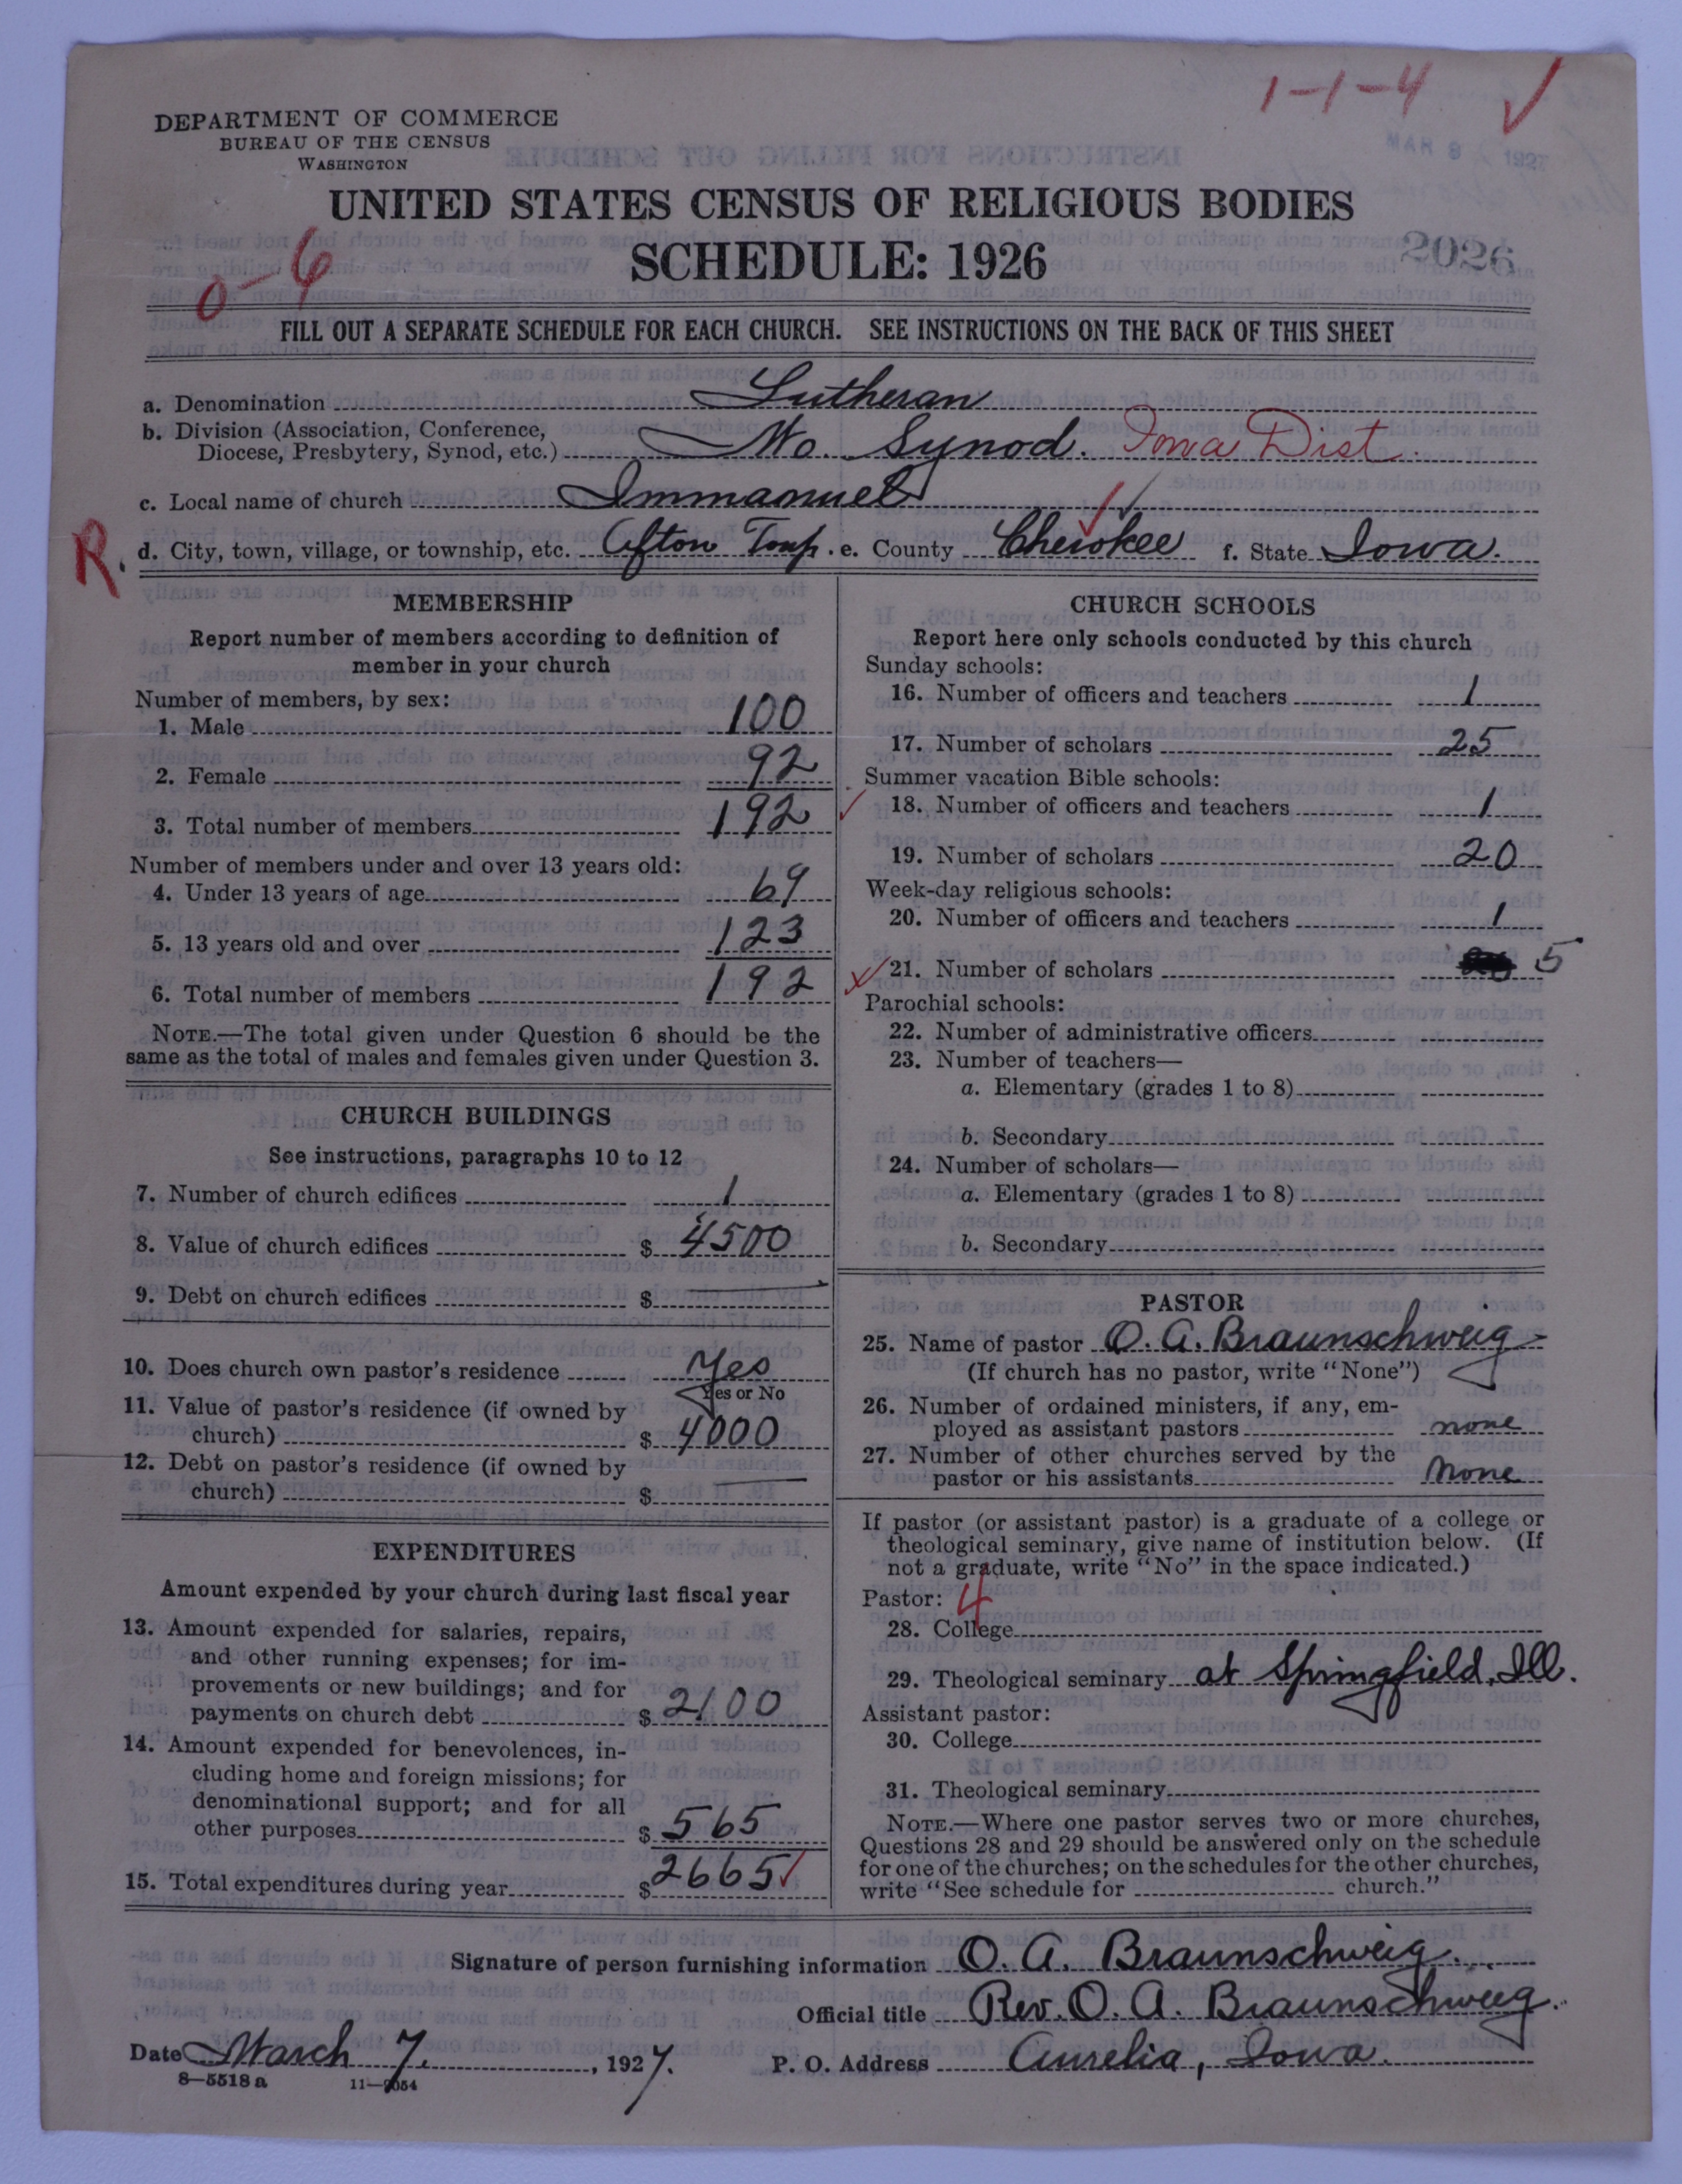 1-1-4
MAR 9 1927
DEPARTMENT OF COMMERCE
BUREAU OF THE CENSUS
WASHINGTON
UNITED STATES CENSUS OF RELIGIOUS BODIES
SCHEDULE: 1926
2026
0-6
FILL OUT A SEPARATE SCHEDULE FOR EACH CHURCH. SEE INSTRUCTIONS ON THE BACK OF THIS SHEET
a. Denomination Lutheran
b. Division (Association, Conference,
Diocese, Presbytery, Synod, etc.) Mo. Synod. Iowa Dist.
c. Local name of church Immanuel
R. d. City, town, village, or township, etc. Afton Twp. e. County Cherokee f. State Iowa.
MEMBERSHIP
Report number of members according to definition of
member in your church
Number of members, by sex:
1. Male 100
2. Female 92
3. Total number of members 192
Number of members under and over 13 years old:
4. Under 13 years of age 69
5. 13 years old and over 123
6. Total number of members 192
NOTE.—The total given under Question 6 should be the
same as the total of males and females given under Question 3.
CHURCH BUILDINGS
See instructions, paragraphs 10 to 12
7. Number of church edifices 1
8. Value of church edifices $ 4500
9. Debt on church edifices $
10. Does church own pastor's residence Yes
Yes or No
11. Value of pastor's residence (if owned by
church) $ 4000
12. Debt on pastor's residence (if owned by
church) $
EXPENDITURES
Amount expended by your church during last fiscal year
13. Amount expended for salaries, repairs,
and other running expenses; for im-
provements or new buildings; and for
payments on church debt $ 2100
14. Amount expended for benevolences, in-
cluding home and foreign missions; for
denominational support; and for all
other purposes $ 565
15. Total expenditures during year $ 2665
CHURCH SCHOOLS
Report here only schools conducted by this church
Sunday schools:
16. Number of officers and teachers 1
17. Number of scholars 25
Summer vacation Bible schools:
18. Number of officers and teachers 1
19. Number of scholars 20
Week-day religious schools:
20. Number of officers and teachers 1
21. Number of scholars 5
Parochial schools:
22. Number of administrative officers
23. Number of teachers—
a. Elementary (grades 1 to 8)
b. Secondary
24. Number of scholars—
a. Elementary (grades 1 to 8)
b. Secondary
PASTOR
25. Name of pastor O. A. Braunschweig
(If church has no pastor, write "None")
26. Number of ordained ministers, if any, em-
ployed as assistant pastors none
27. Number of other churches served by the
pastor or his assistants none
If pastor (or assistant pastor) is a graduate of a college or
theological seminary, give name of institution below. (If
not a graduate, write "No" in the space indicated.)
Pastor: 4
28. College
29. Theological seminary at Springfield, Ill.
Assistant pastor:
30. College
31. Theological seminary
NOTE.—Where one pastor serves two or more churches,
Questions 28 and 29 should be answered only on the schedule
for one of the churches; on the schedules for the other churches,
write "See schedule for church."
Signature of person furnishing information O. A. Braunschweig.
Official title Rev. O. A. Braunschweig.
Date March 7, 1927. P. O. Address Aurelia, Iowa.
8-5518 a 11-9054